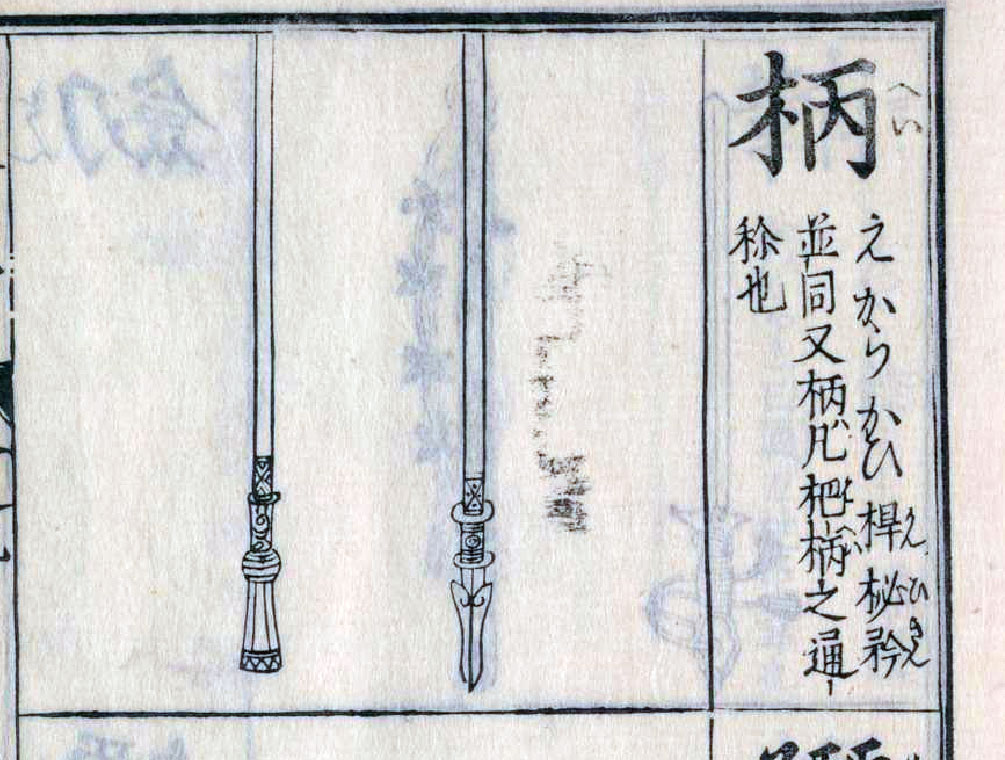 柄
へい
え からかひ 桿 柲 矜
かん ひ きん
並同又柄凡把柄之通
称也